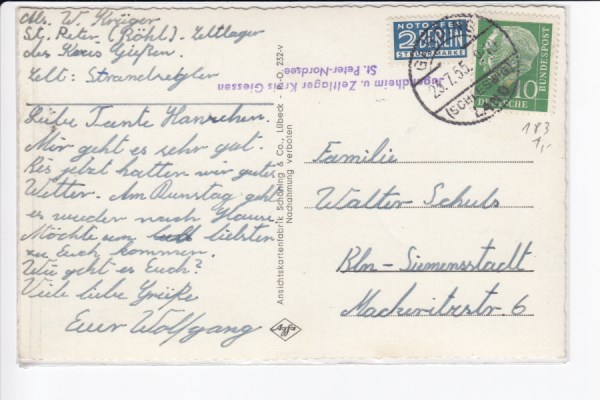 Abs. W. Krüger
St. Peter (Böhl). Zeltlager
des Kreis Gießen.
Zelt: Strandsegler
Liebe Tante Hannchen.
Mir geht es sehr gut.
Bis jetzt hatten wir gutes
Wetter. Am Dienstag geht
es wieder nach Hause.
Möchte am liebsten
zu Euch kommen.
Wie geht es Euch?
Viele liebe Grüße
Euer Wolfgang
Ansichtskartenfabrik Schöning & Co., Lübeck
Nachahmung verboten
Jugendheim u. Zeltlager Kreis Giessen
St. Peter-Nordsee
NOTOPFER
2 BERLIN
STEUERMARKE
23.7.55
(SCHLESWIG)
DEUTSCHE
BUNDESPOST
10
183
1,-
Familie
Walter Schulz
Bln-Siemensstadt
Mäckeritzstr. 6